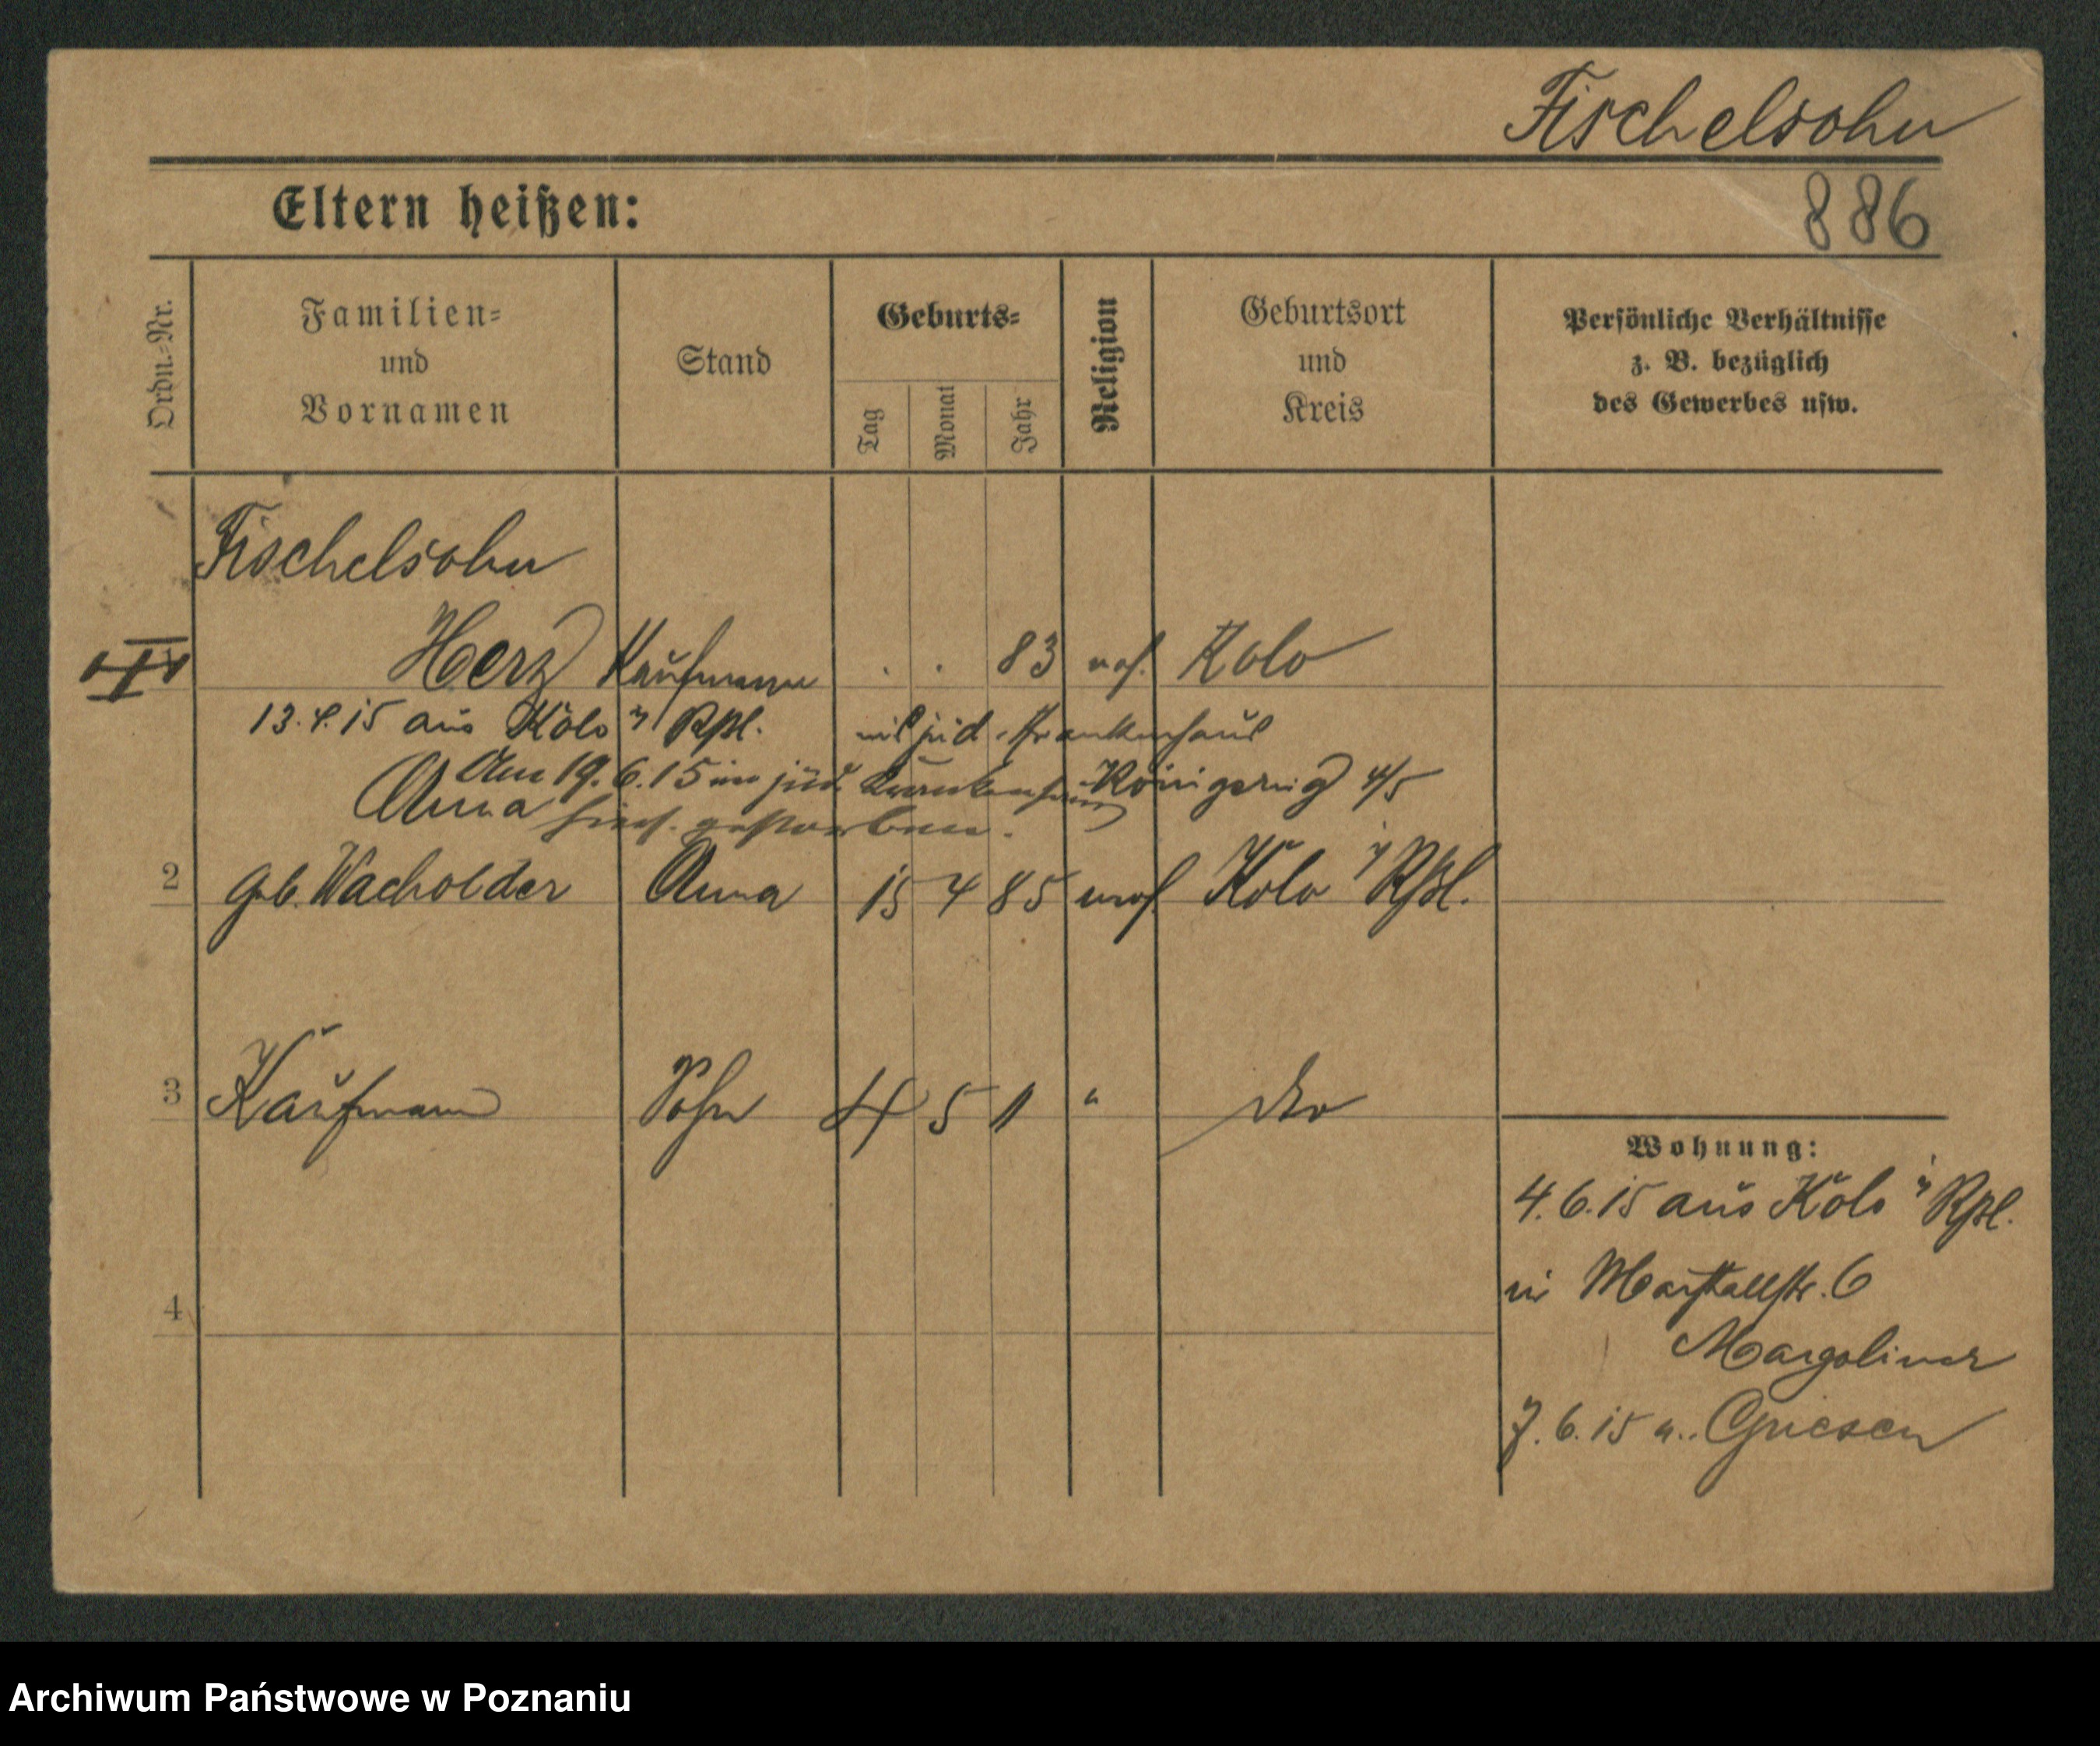 Fischelsohn
Eltern heißen:
886
Ordn.-Nr.
Familien-
und
Vornamen
Stand
Geburts-
Tag
Monat
Jahr
Religion
Geburtsort
und
Kreis
Persönliche Verhältnisse
z. B. bezüglich
des Gewerbes usw.
Fischelsohn
Herz Kaufmann . . 83 mos. Kolo
13.4.15 aus Kolo Rpl. jüd. Krankenhaus
Am 19.6.15 im jüd. Krankenhaus Königsring 4/5
Anna hies. gestorben.
2 geb. Wacholder Anna 15 4 85 mos. Kolo Rpl.
3 Kaufmann Sohn 4 5 11 " dto
Wohnung:
4.6.15 aus Kolo Rpl.
in Marstallstr. 6
Margoliner
7.6.15 n. Gnesen
4
Archiwum Państwowe w Poznaniu